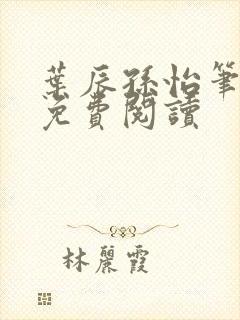 葉辰孫怡筆
免費閱讀
林麗霞